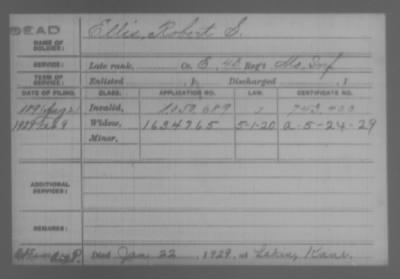 DEAD
NAME OF SOLDIER: Ellis, Robert S.
SERVICE: Late rank, Co. B, 42 Reg't Mo. Inf
TERM OF SERVICE: Enlisted , 1 Discharged , 1
DATE OF FILING. CLASS. APPLICATION NO. LAW. CERTIFICATE NO.
1891 Aug Invalid, 1050.689
1929 Feb 9 Widow, 1634765 5-1-20 a-5-24-29
Minor,
ADDITIONAL SERVICES:
REMARKS:
Died Jan. 22, 1929, at Lakin, Kans.